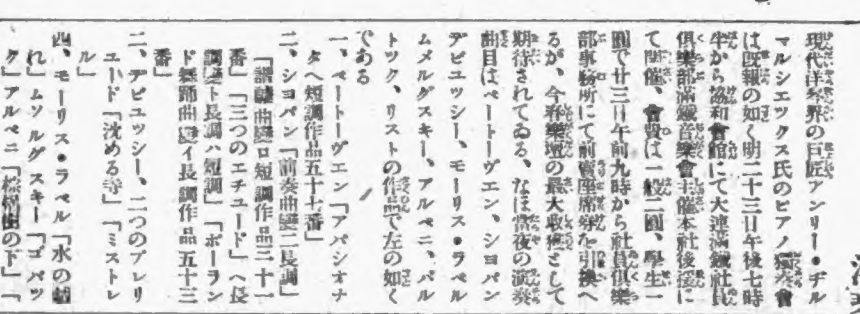 現代洋琴界の巨匠アンリー・ヂル
マルシエツクス氏のピアノ獨奏會
は既報の如く明二十三日午後七時
半から協和會館にて大連滿鐵社員
倶樂部滿鐵音樂會主催本社後援に
て開催、會費は一般二圓、學生一
圓で廿三日午前九時から社員倶樂
部事務所にて前賣座席券を引換へ
るが、今春樂壇の最大收穫として
期待されてゐる、なほ當夜の演奏
曲目はベートーヴエン、シヨパン
デビユツシー、モーリス・ラベル
ムメルグスキー、アルベニ、バル
トツク、リストの作品で左の如く
である
一、ベートーヴエン「アパシオナ
タヘ短調作品五十七番」
二、シヨパン「前奏曲變ニ長調」
「諧謔曲變ロ短調作品三十一
番」「三つのエチユード」ヘ長
調變ト長調ハ短調」「ポーラン
ド舞踊曲變イ長調作品五十三
番」
三、デビユッシー、二つのプレリ
ユード「沈める寺」「ミストレ
ル」
四、モーリス・ラベル「水の戯
れ」ムソルグスキー「ゴパツ
ク」アルベニ「樹の下」「